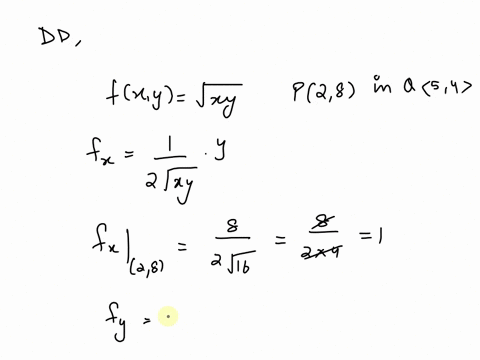 DD,
f(x,y) = √xy P(2,8) in Q<5,4>
fx = 1/(2√xy) · y
fx|(2,8) = 8/(2√16) = 8/(2×4) = 1
fy =